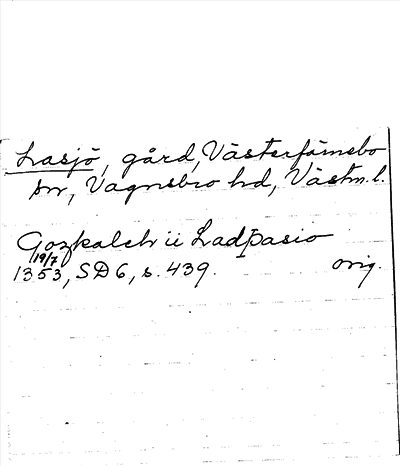 Lasjö, gård, Västerfärnebo
sn, Vagnsbro hd, Västm. l.
Gozkalch ii Ladþasio
19/7
1353, SD 6, s. 439. orig.